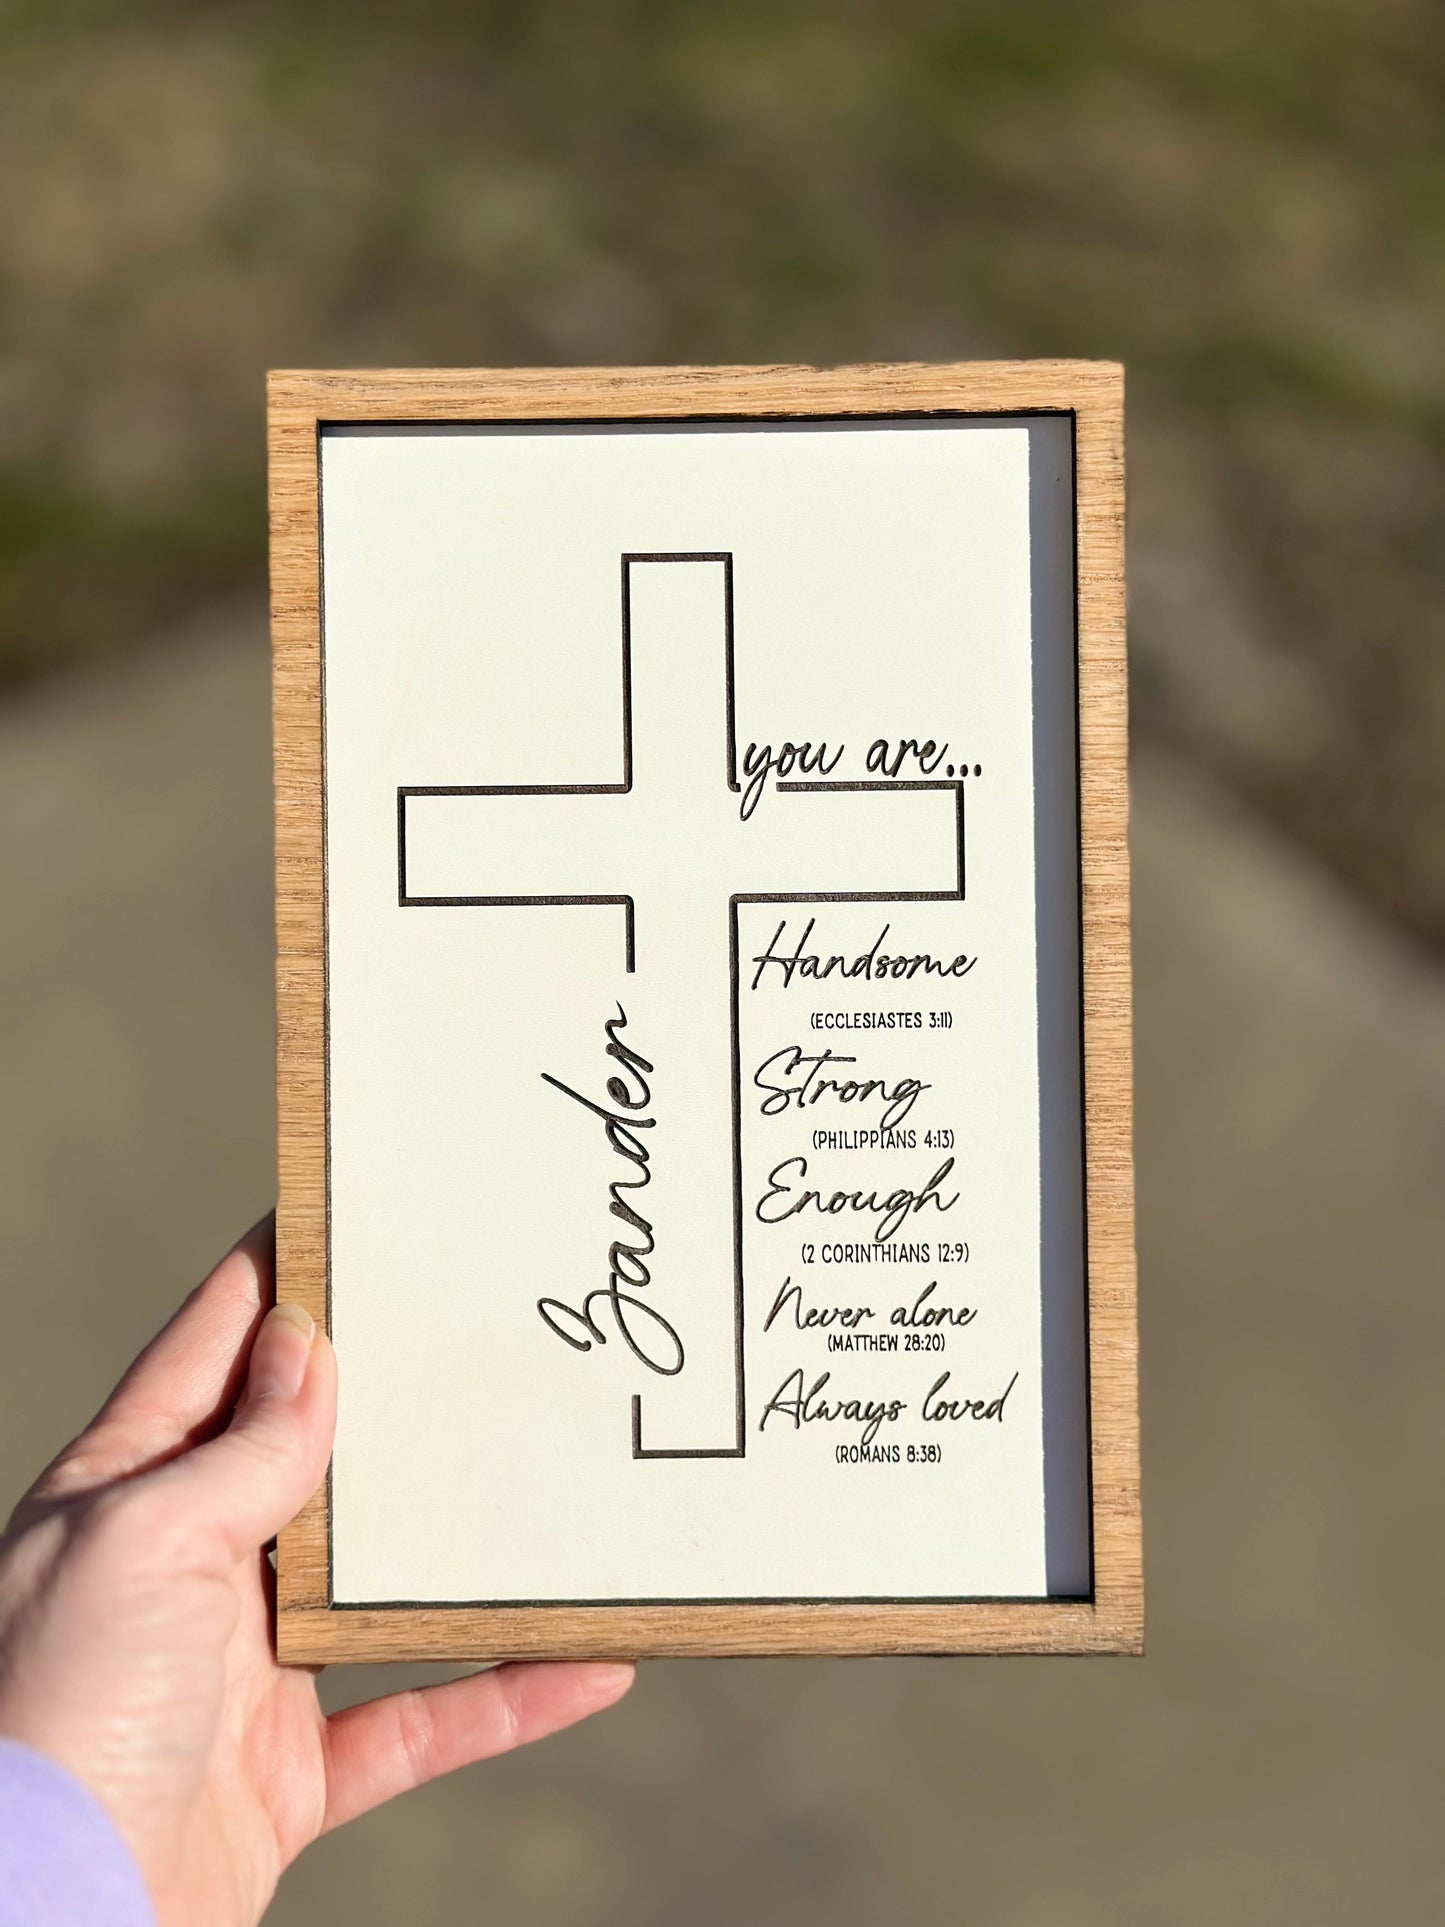 Zander
you are...
Handsome
(ECCLESIASTES 3:11)
Strong
(PHILIPPIANS 4:13)
Enough
(2 CORINTHIANS 12:9)
Never alone
(MATTHEW 28:20)
Always loved
(ROMANS 8:38)